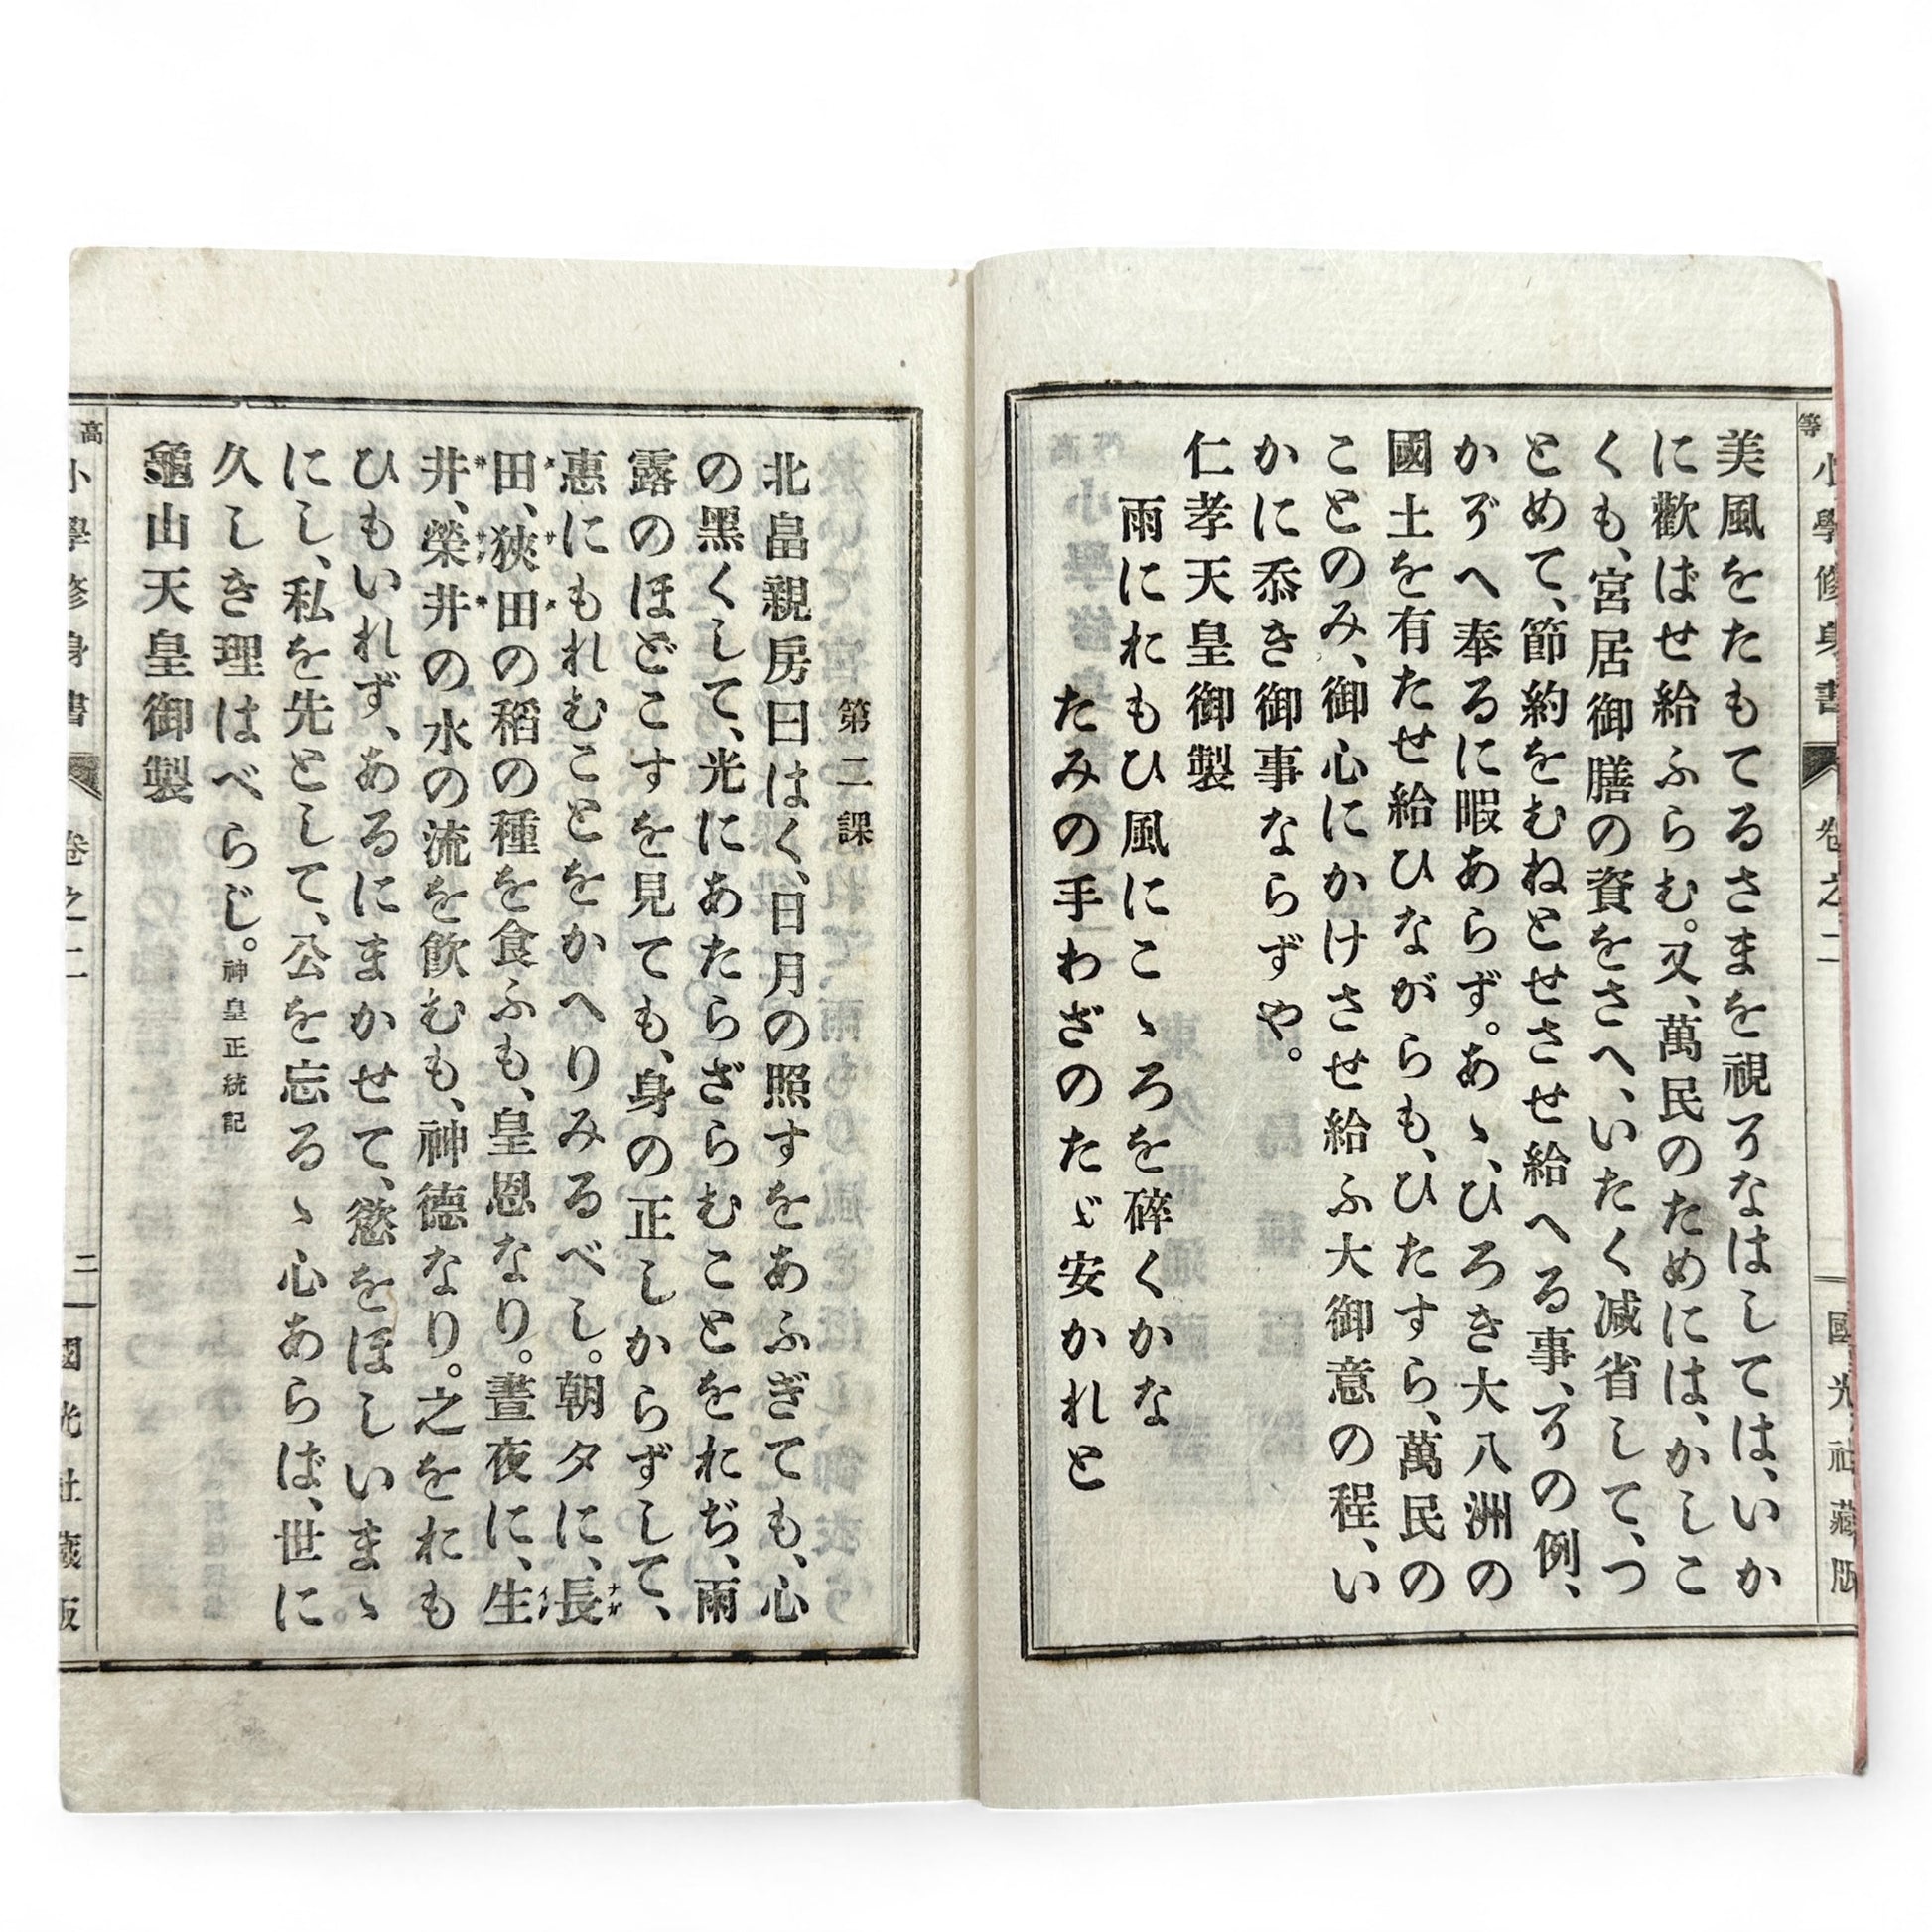 等小學修身書 卷之二 國光社藏版
美風をたもてるさまを視そなはしては、いか
に歡ばせ給ふらむ。又、萬民のためには、かしこ
くも、宮居御膳の資をさへ、いたく減省して、つ
とめて、節約をむねとせさせ給へる事、その例、
かぞへ奉るに暇あらず。あゝ、ひろき大八洲の
國土を有たせ給ひながらも、ひたすら、萬民の
ことのみ、御心にかけさせ給ふ大御意の程、い
かに忝き御事ならずや。
仁孝天皇御製
雨におもひ風にこゝろを碎くかな
たみの手わざのたゞ安かれと
第二課
北畠親房曰はく、日月の照すをあふぎても、心
の黑くして、光にあたらざらむことをおぢ、雨
露のほどこすを見ても、身の正しからずして、
惠にもれむことをかへりみるべし。朝夕に、長
田、狹田の稻の種を食ふも、皇恩なり。晝夜に、生
井、榮井の水の流を飮むも、神德なり。之をおも
ひもいれず、あるにまかせて、慾をほしいまゝ
にし、私を先として、公を忘るゝ心あらば、世に
久しき理はべらじ。神皇正統記
龜山天皇御製
高小學修身書 卷之二 三 國光社藏版